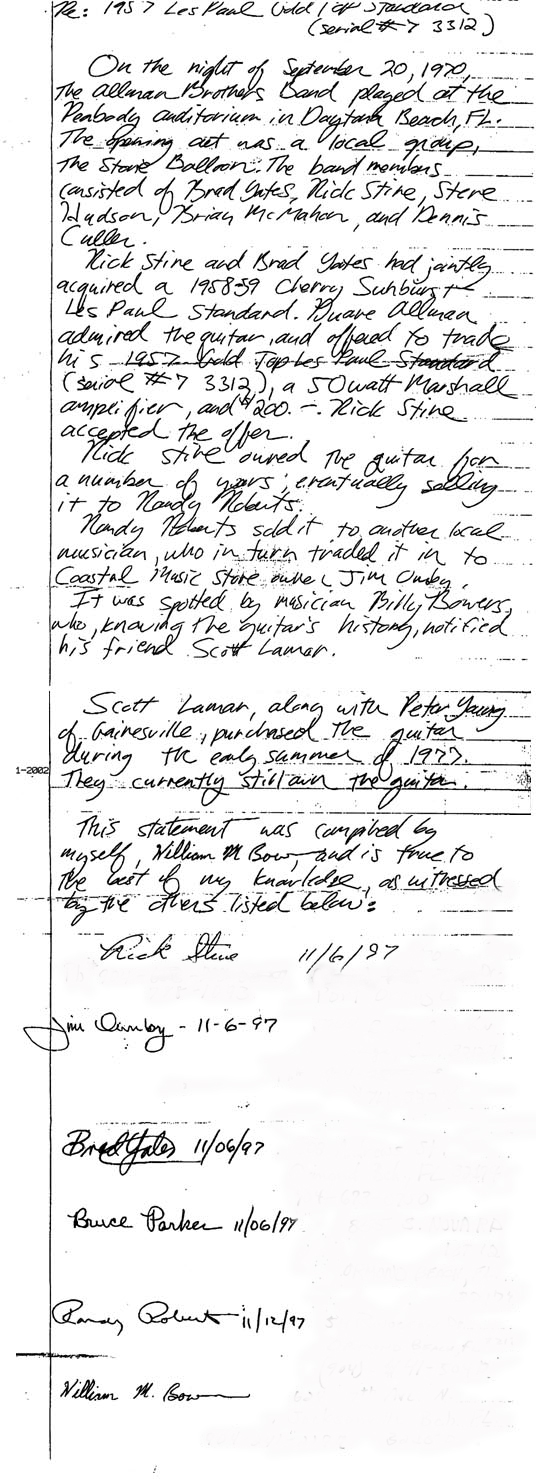 Re: 1957 Les Paul Gold Top Standard
(serial # 7 3312)
On the night of September 20, 1970,
The Allman Brothers Band played at the
Peabody auditorium in Daytona Beach, FL.
The opening act was a local group,
The Stone Balloon. The band members
consisted of Brad Yates, Rick Stine, Steve
Hudson, Brian McMahon, and Dennis
Culler.
Rick Stine and Brad Yates had jointly
acquired a 1958-59 Cherry Sunburst
Les Paul Standard. Duane Allman
admired the guitar, and offered to trade
his 1957 Gold Top Les Paul Standard
(serial # 7 3312), a 50 watt Marshall
amplifier, and $200.-. Rick Stine
accepted the offer.
Rick Stine owned the guitar for
a number of years, eventually selling
it to Randy Roberts.
Randy Roberts sold it to another local
musician, who in turn traded it in to
Coastal Music Store owner Jim Ownby.
It was spotted by musician Billy Bowers,
who, knowing the guitar's history, notified
his friend Scott Lamar.
Scott Lamar, along with Peter Young
of Gainesville, purchased the guitar
during the early summer of 1977.
1-2002
They currently still own the guitar.
This statement was compiled by
myself, William M Bow, and is true to
the best of my knowledge, as witnessed
by the others listed below:
Rick Stine 11/6/97
Jim Ownby - 11-6-97
Brad Yates 11/06/97
Bruce Parker 11/06/97
Randy Roberts 11/12/97
William M. Bow